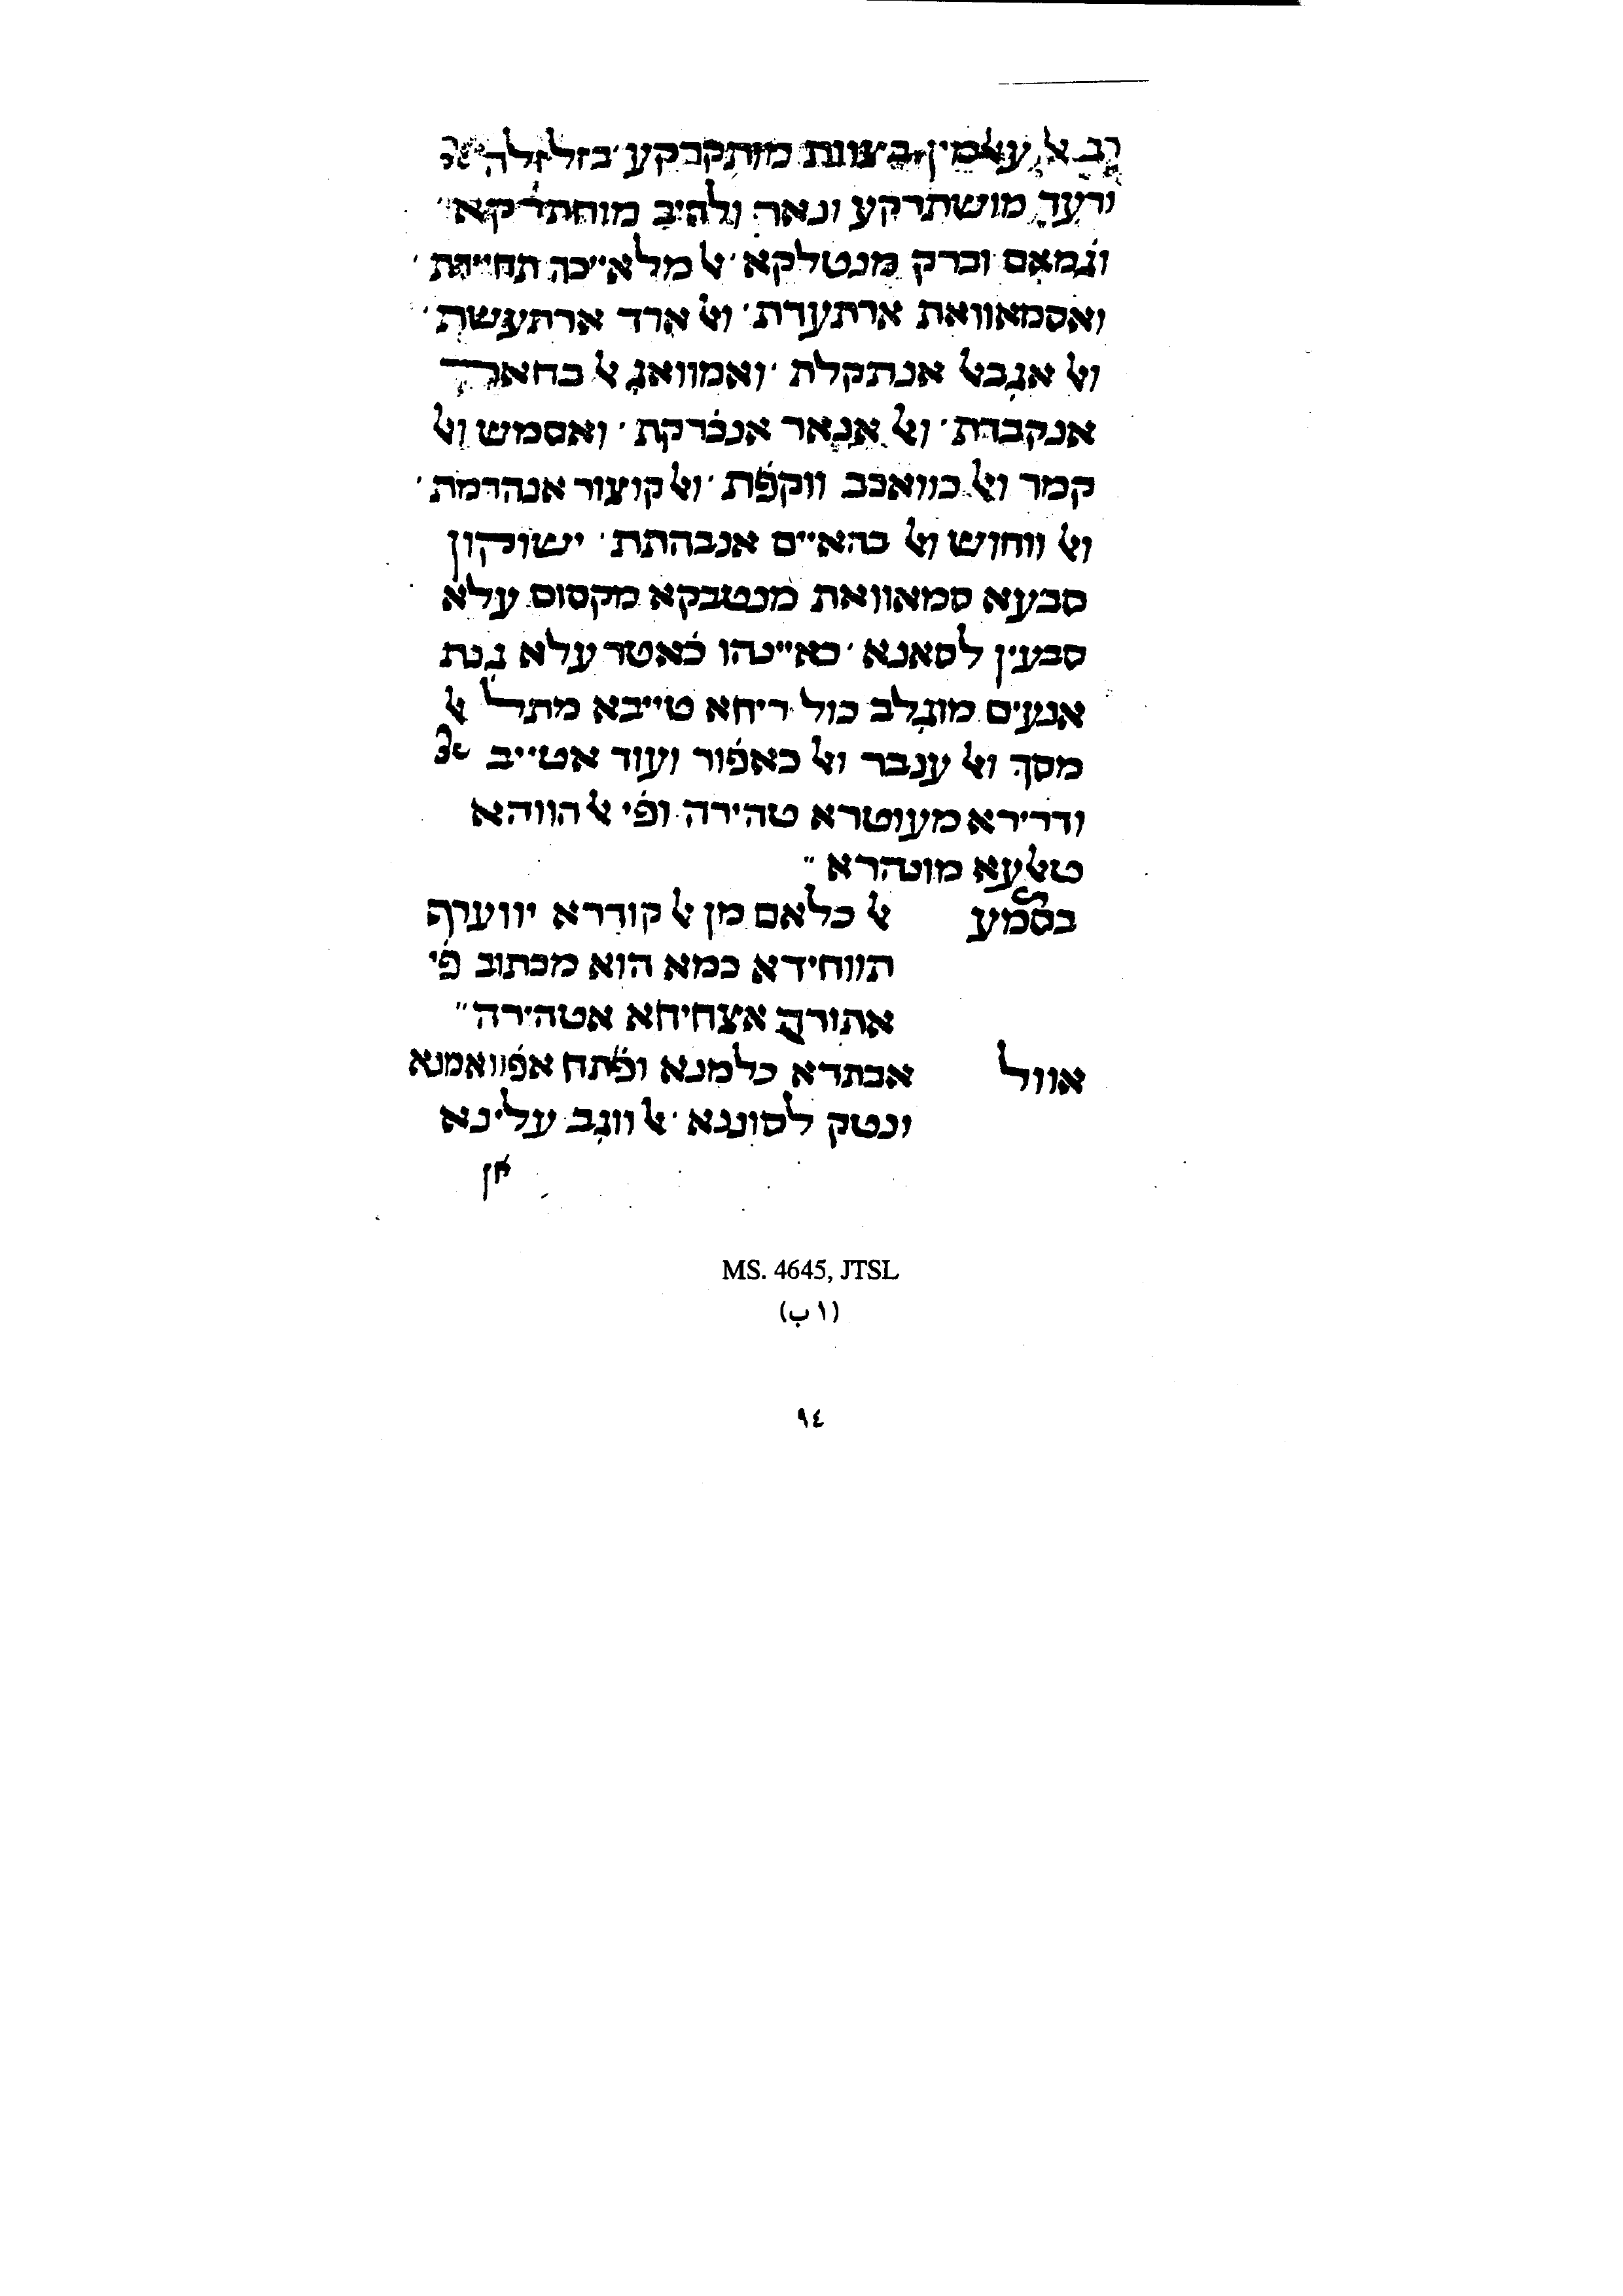 רב אל עאלמין בצוות מותקרקע׳ בזלזלה
ורעד מושתרקע ונאר ולהיב מוחתרקא״
וגמאם וברק מנטלקא׳ אל מלאייכה תחיירת׳
ואסמאוואת ארתעדת׳ ואל ארד ארתעשת׳
ואל אגבאל אנתקלת׳ ואמוואג אל בחאר
אנקבדת׳ ואל אנאר אנכרקת׳ ואסמש ואל
קמר ואל כוואכב ווקפ̇ת׳ ואל קוצור אנהדמת׳
ואל ווחוש ואל בהאיים אנבהתת׳ ישוקון
סבעא סמאוואת מנטבקא מקסום עלא
סבעין לסאנא׳ כאיינהו כ̇אטר עלא גנת
אנעים מוגלב כול ריחא טייבא מתל אל
מסך ואל ענבר ואל כאפ̇ור ועוד אטייב
ודרירא מעוטרא טהירה ופ̇י אל הווהא
טאלעא מונהרא״
בסמע אל כלאם מן אל קודרא יוועריף
תווחידא כמא הוא מכתוב פ̇י
אתורה אצחיחא אטהירה״
אוול אבתדא כלמנא ופ̇תח אפ̇וואמנא
ונטק לסוננא׳ אל ווגב עלינא
אן
MS. 4645, JTSL
(١ب)
٩٤